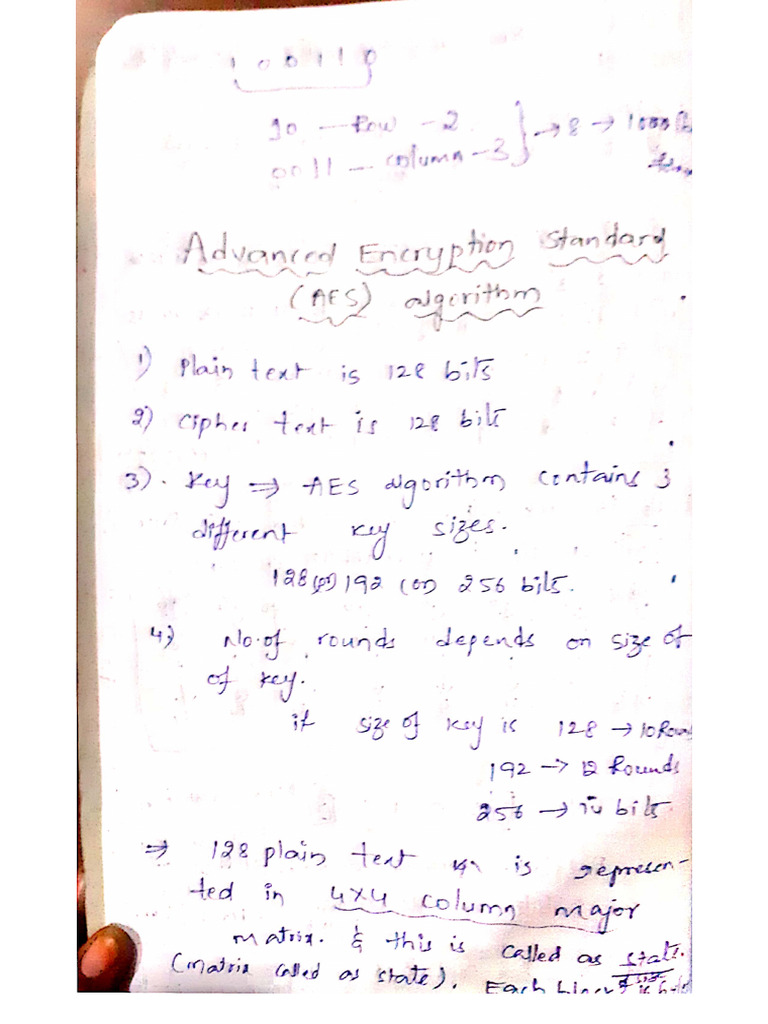 100110
10 — Row - 2
0011 — column - 3 } → 8 → 1000
Advanced Encryption Standard
(AES) algorithm
1) Plain text is 128 bits
2) cipher text is 128 bits
3). Key ⇒ AES algorithm contains 3
different key sizes.
128 (or) 192 (or) 256 bits.
4) No. of rounds depends on size of
of key.
if size of key is 128 → 10 Roun
192 → 12 Rounds
256 → 14 bits
⇒ 128 plain text is represen-
ted in 4x4 column major
matrix. & this is called as state.
(matrix called as state). Each block is